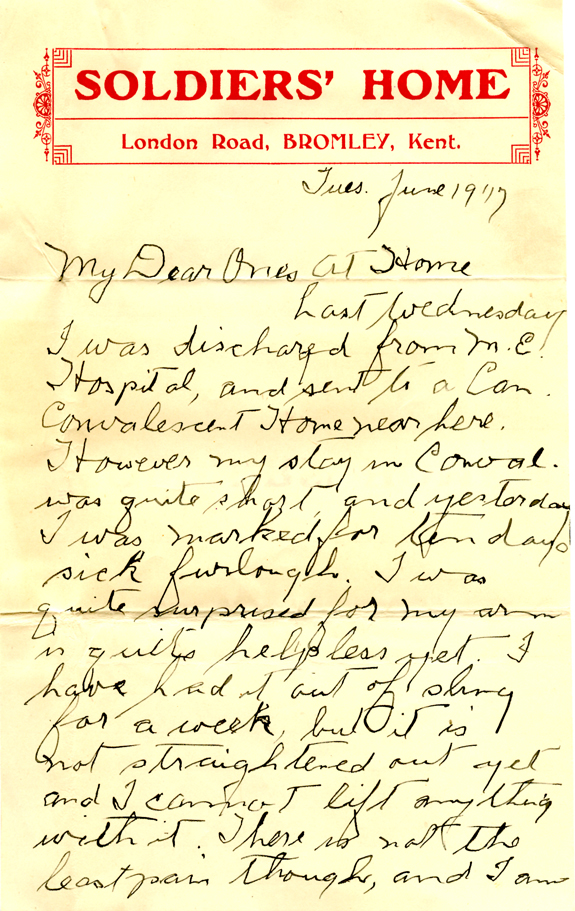 SOLDIERS' HOME
London Road, BROMLEY, Kent.
Tues. June 19'17
My Dear Ones At Home
Last Wednesday
I was discharged from M.E.
Hospital, and sent to a Can.
Convalescent Home near here.
However my stay in Conval.
was quite short, and yesterday
I was marked for ten days
sick furlough. I was
quite surprised for my arm
is quite helpless yet. I
have had it out of sling
for a week, but it is
not straightened out yet
and I cannot lift anything
with it. There is not the
least pain though, and I am